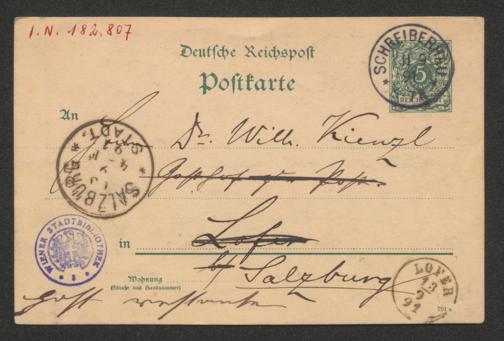 I.N. 182.807
Deutsche Reichspost
Postkarte
SCHREIBERHAU
5
An
Dr. Wilh. Kienzl
Gasthof zur Post
SALZBURG STADT
in Lofer
bei Salzburg
WIENER STADTBIBLIOTHEK
Wohnung
(Straße und Hausnummer)
LOFER
13
9
91